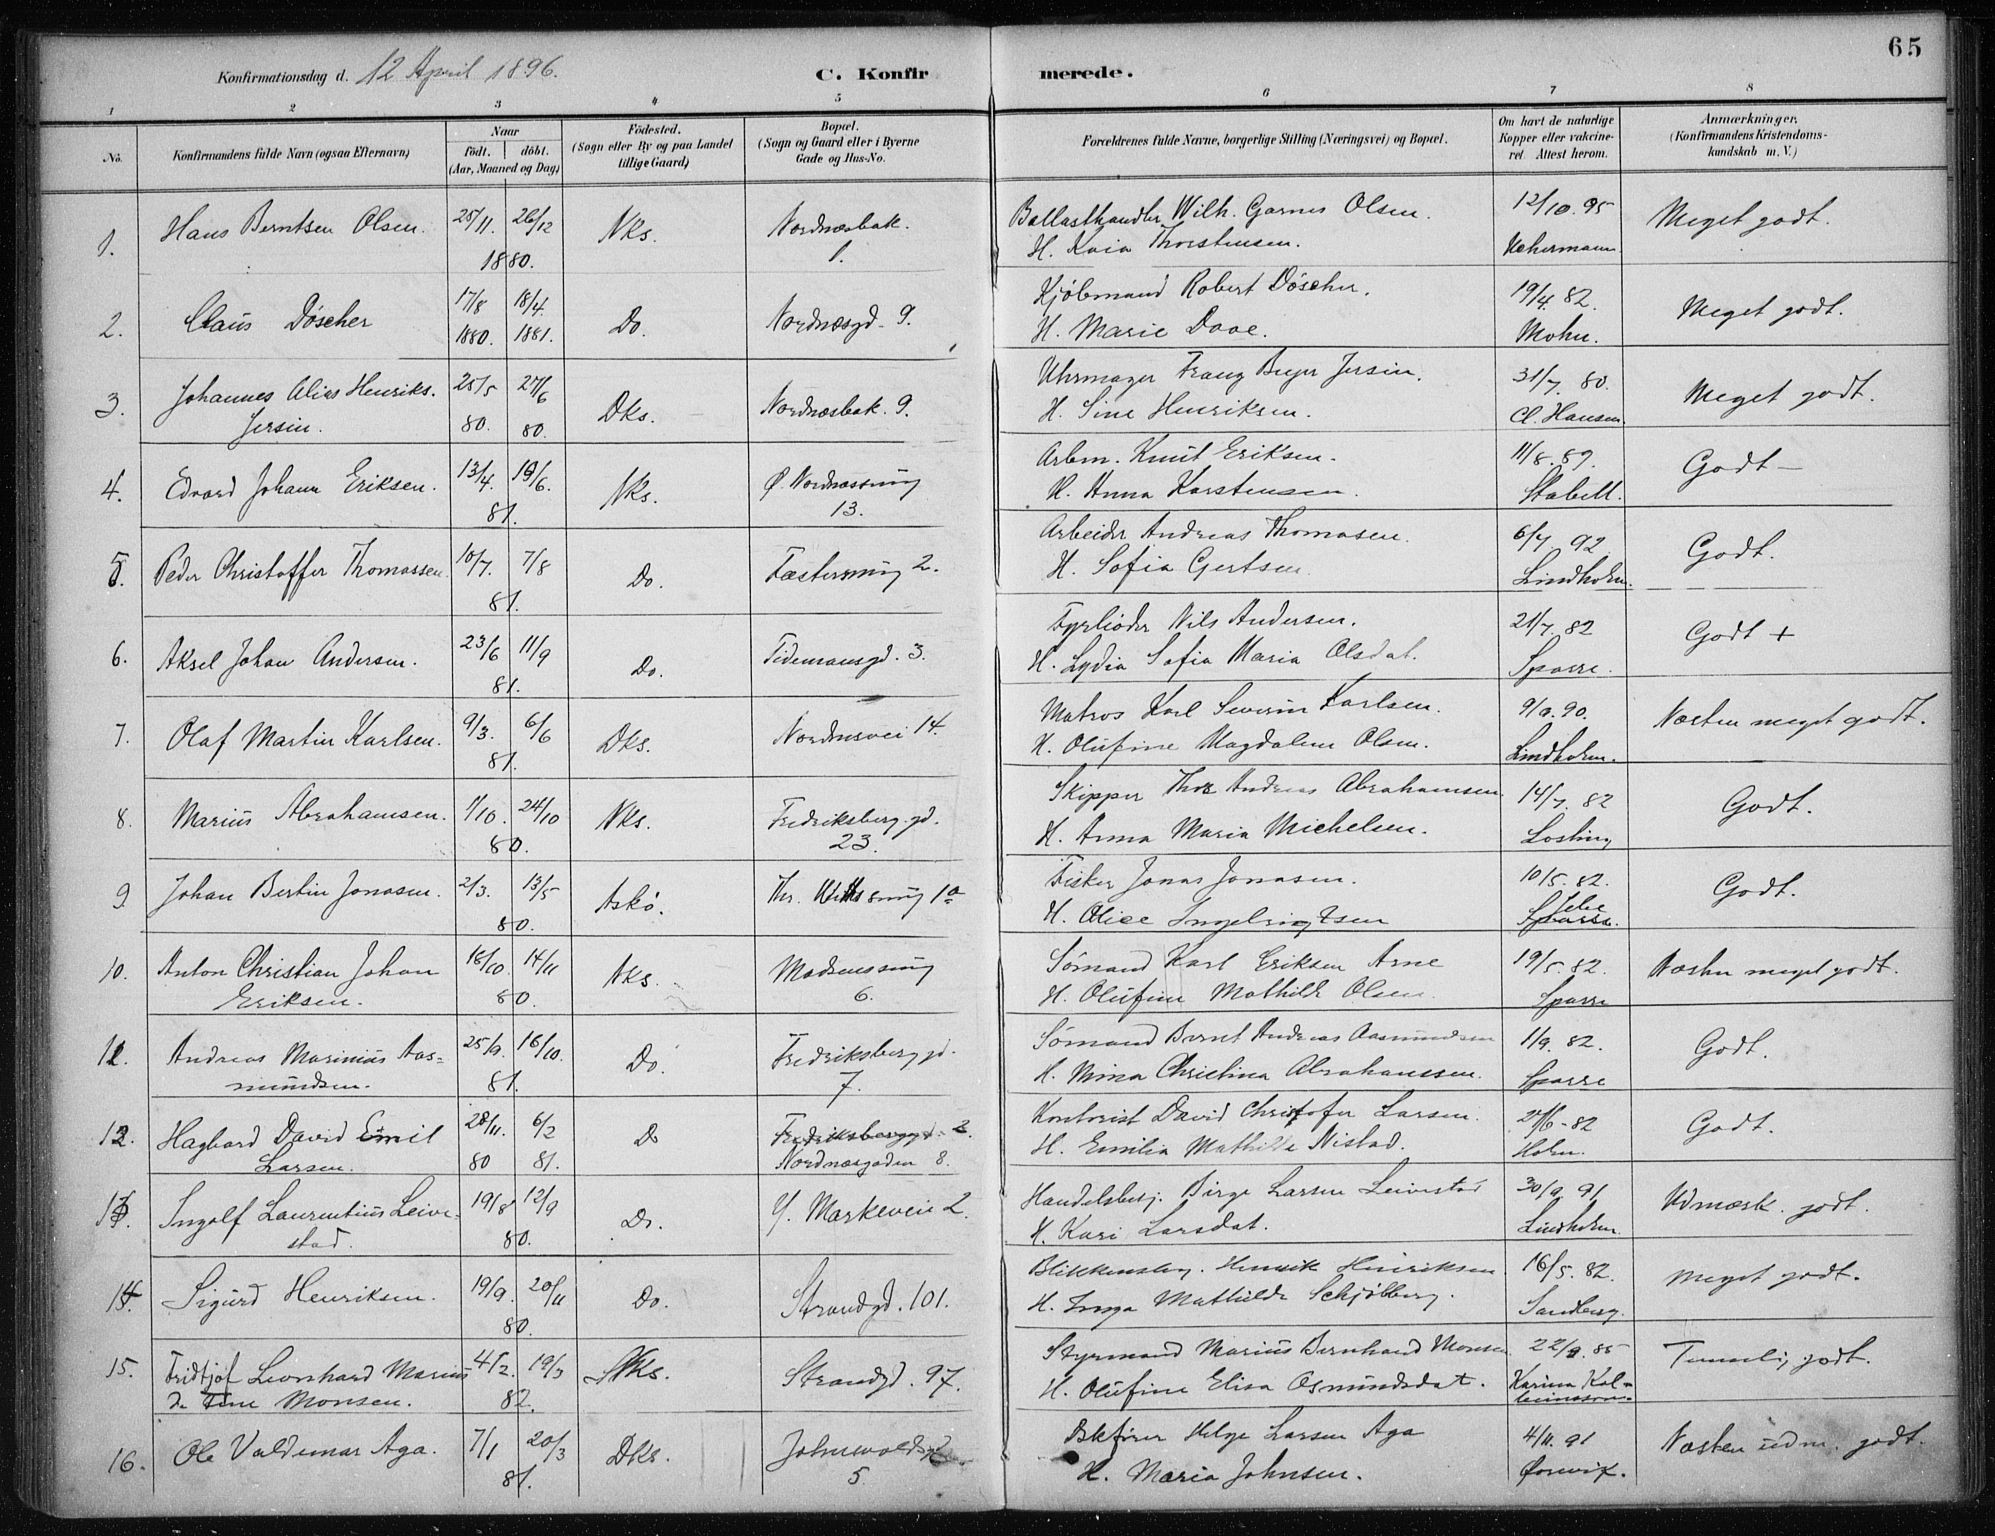 65
Konfirmationsdag d. 12 April 1896.
C. Konfirmerede.
1 2 3 4 5 6 7 8
No.
Konfirmandens fulde Navn (ogsaa Efternavn)
Naar
födt. döbt.
(Aar, Maaned og Dag)
Födested.
(Sogn eller By og paa Landet
tillige Gaard)
Bopæl.
(Sogn og Gaard eller i Byerne
Gade og Hus-No.
Forældrenes fulde Navne, borgerlige Stilling (Næringsvei) og Bopæl.
Om havt de naturlige
Kopper eller vakcine-
ret. Attest herom.
Anmærkninger.
(Konfirmandens Kristendoms-
kundskab m. V.)
1. Hans Berntsen Olsen. 25/11. 26/12 1880. Nks. Nordnæsbak. 1.
Ballasthandler Wilh. Garnes Olsen. 12/10. 95 Meget godt.
H. Kaia Thorstensen.
2. Claus Döscher 17/8 1880. 18/4. 1881. Do. Nordnæsgd. 9.
Kjöbmand Robert Döscher. 19/4. 82 Meget godt.
H. Marie Dooe. Mohn.
3. Johannes Alias Henriks. 25/5 80. 27/6 80. Dks. Nordnæsbak. 9.
Jersin.
Uhrmager Franz Beyer Jersin. 31/7. 80. Meget godt.
H. Sine Henriksen. Cl. Hansen.
4. Edvard Johann Eriksen. 13/4. 19/6. 81. Nks. Ø. Nordnæssmug 13.
Arbm. Knut Eriksen. 11/8. 89. Godt –
H. Anna Karstensen. Stabell.
5. Peder Christoffer Thomassen. 10/7. 7/8 81. Do. Fæstersmug 2.
Arbeider Andreas Thomasen. 6/7 92 Godt.
H. Sofia Gertsen. Lindholm.
6. Aksel Johan Andersen. 23/6 11/9 81. Do. Tidemansgd. 3.
Fyrböder Nils Andersen. 21/7. 82 Godt +
H. Lydia Sofia Maria Olsdat. Sparre.
7. Olaf Martin Karlsen. 9/3. 6/6 81. Dks. Nordnæsvei 14.
Matros Karl Severin Karlsen. 90. Næsten meget godt.
H. Olufine Magdalene Olsen. Lindholm.
8. Marius Abrahamsen. 1/10. 24/10 80. Nks. Fredriksberg.gd. 23.
Skipper Andreas Abrahamsen 14/7. 82 Godt.
H. Anna Maria Michelsen.
9. Johan Bertin Jonasen. 2/3. 13/5 80. Askö.
Fisker Jonas Jonasen. 10/5. 82. Godt.
H. Olice Ingebrigtsen
10. Anton Christian Johan 18/10. 14/11 80. Nks. Madsenssmug 6.
Eriksen.
Sömand Karl Eriksen Arne 19/5. 82. Næsten meget godt.
H. Olufine Mathilde Olsen. Sparre
11. Andreas Marinius Aas- 25/9. 16/10. 81. Do. Fredriksberg gd. 7.
mundsen.
Sömand Bernt Andreas Aasmundsen 11/9. 82. Godt.
H. Mina Christina Abrahamssen. Sparre
12. Hagbard David Emil 28/11. 80 6/2 81. Do Fredriksberggd. 2.
Larsen. Nordnæsgaden 8.
Kontorist David Christofer Larsen. 82 Godt.
H. Emilia Mathilde Nistad.
13. Ingolf Laurentius Leive- 19/8 12/9 80. Do. Y. Markevei 2.
stad.
Handelsbetj. Birge Larsen Leivestad 30/9. 91 Udmærk. godt.
H. Kari Larsdat. Lindholm.
14. Sigurd Henriksen. 19/9. 20/11 80. Do. Strandgd. 101.
Blikkenslag. Henrik Henriksen. 16/5. 82. Meget godt.
H. Inga Mathilde Schjölberg. Sandberg.
15. Fridtjof Leonhard Marius 4/2. 19/3 82. Nks. Strandgd. 97.
de Fine Monsen.
Styrmand Marius Bernhard Monsen. 22/9. 85 Temmelig godt.
H. Olufine Elisa Osmundsdat.
16. Ole Valdemar Aga. 7/1 20/3 81. Dks. 5.
Helge Larsen Aga 4/11. 91 Næsten udm. godt.
H. Maria Johnsen.